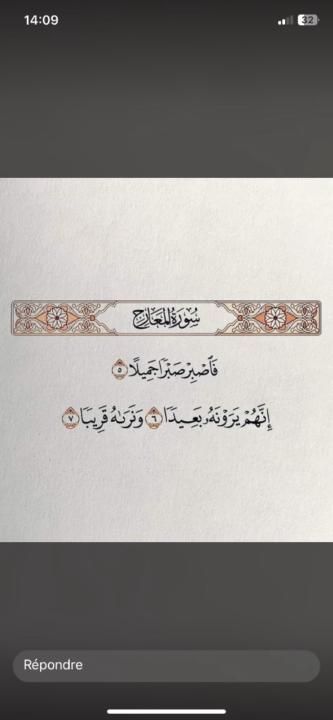 14:09
32
سُورَةُ المَعَارِجِ
فَٱصْبِرْ صَبْرًا جَمِيلًا ٥
إِنَّهُمْ يَرَوْنَهُۥ بَعِيدًا ٦ وَنَرَىٰهُ قَرِيبًا ٧
Répondre